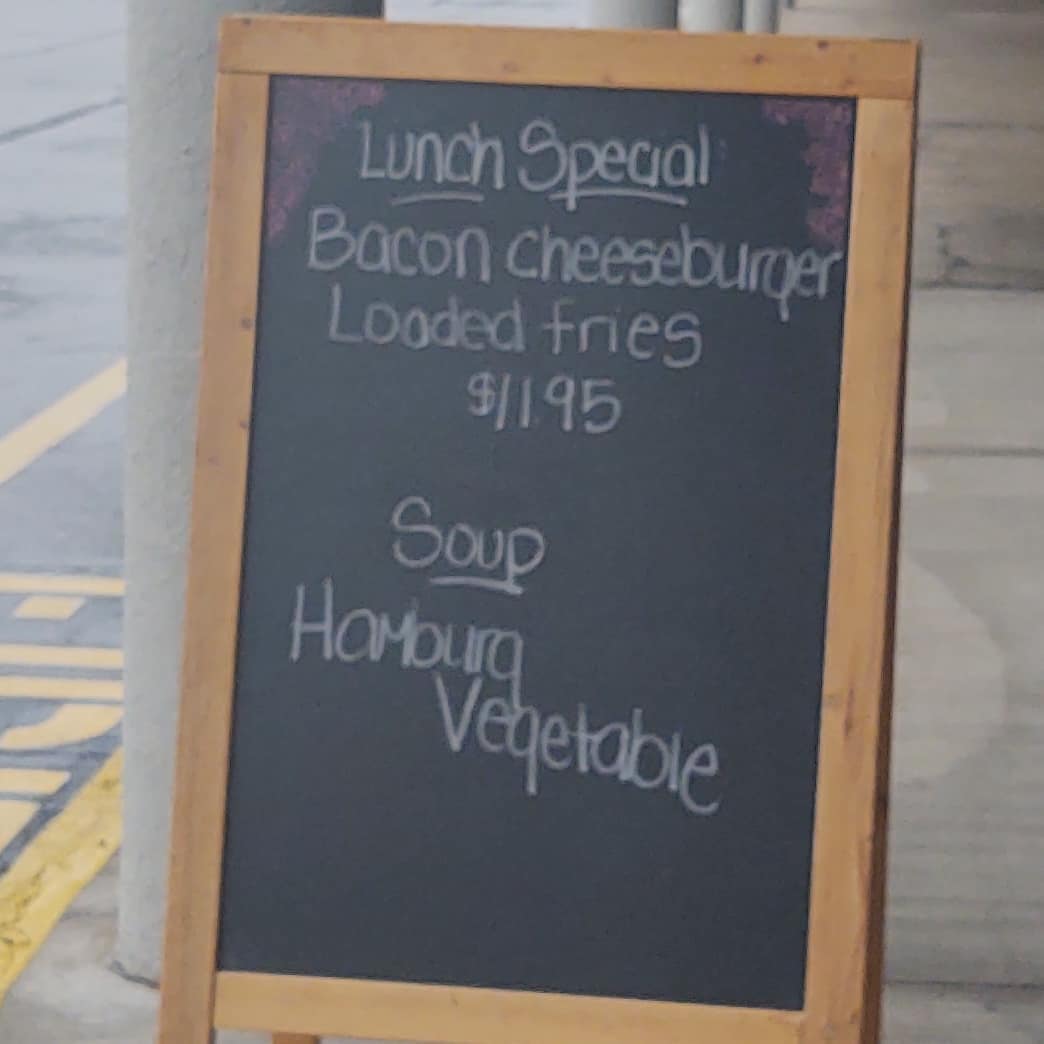 Lunch Special
Bacon cheeseburger
Loaded fries
$11.95
Soup
Hamburg
Vegetable